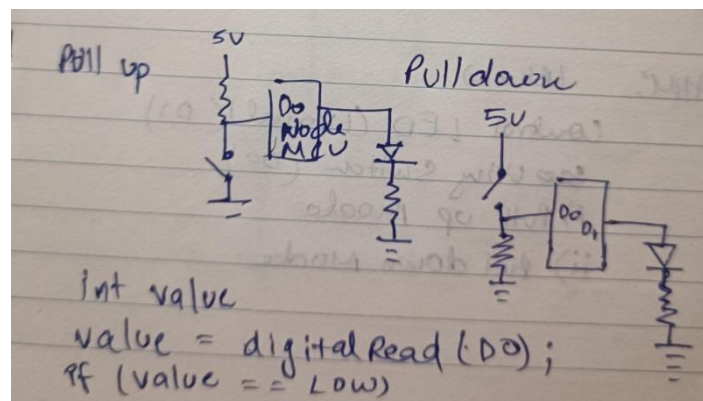 Pull up
5V
D0
Node
MCU
Pull down
5V
D0
D1
int value
value = digitalRead (D0);
if (value == LOW)